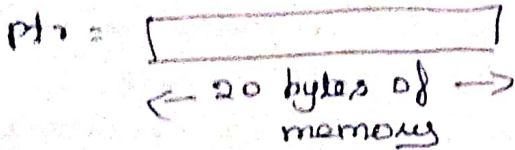 ptr =
<- 20 bytes of ->
memory